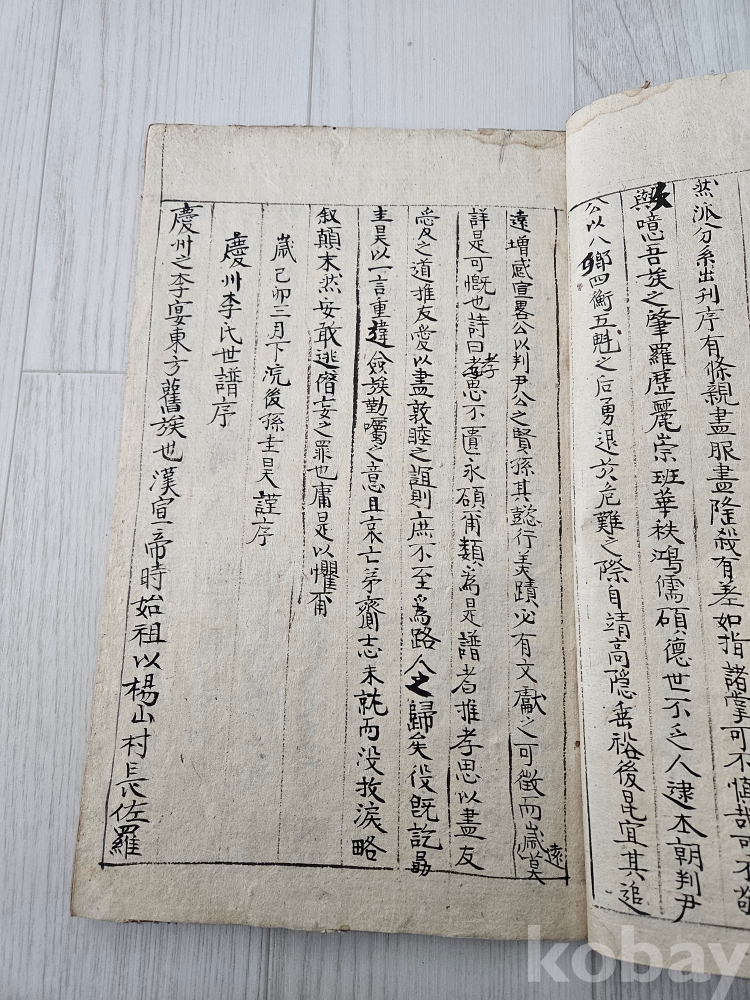 然派分系出刊序有條親盡服盡隆殺有差如指諸掌可不愼哉可不敬
與噫吾族之肇羅歷麗崇班華秩鴻儒碩德世不乏人逮本朝判尹
公以八鄕四衡五魁之后勇退於危難之際自靖高隱垂裕後昆宜其追
遠增感宣畧公以判尹公之賢孫其懿行美蹟必有文獻之可徵而歲莫遠
詳是可慨也詩曰孝思不匱永碩甭類爲是譜者推孝思以盡友
愛之道推友愛以盡敦睦之誼則庶不至爲路人之歸矣役旣訖勗
圭昊以一言重違僉族勤囑之意且哀亡弟齎志未就而沒抆淚略
叙顚末然安敢逃僭妄之罪也庸是以懼甭
歲己卯三月下浣後孫圭昊謹序
慶州李氏世譜序
慶州之李寔東方舊族也漢宣帝時始祖以楊山村長佐羅
kobay